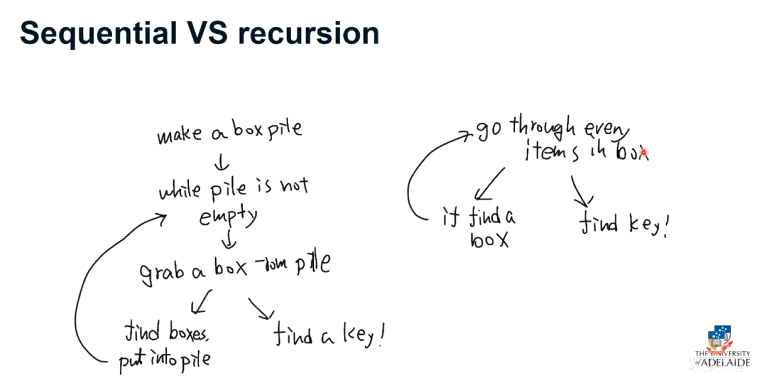 Sequential VS recursion
make a box pile
↓
while pile is not
empty
↓
grab a box from pile
find boxes,
put into pile
find a key!
go through every
items in box
if find a
box
find key!
THE UNIVERSITY
of ADELAIDE